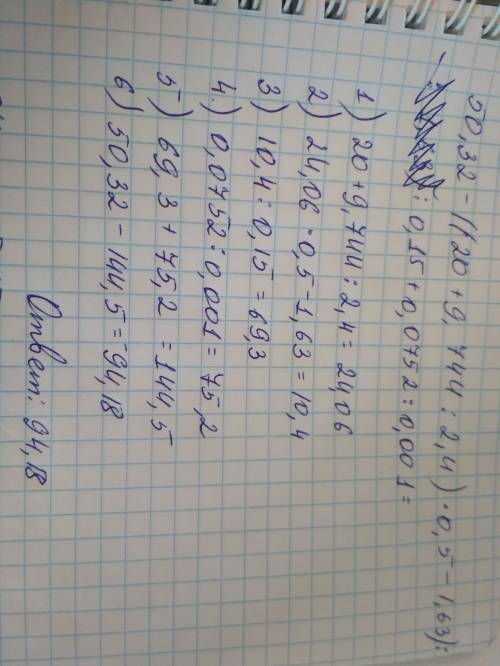 50,32 - ((20 + 9,744 : 2,4) · 0,5 - 1,63) :
: 0,15 + 0,0752 : 0,001 =
1) 20 + 9,744 : 2,4 = 24,06
2) 24,06 · 0,5 - 1,63 = 10,4
3) 10,4 : 0,15 = 69,3
4.) 0,0752 : 0,001 = 75,2
5) 69,3 + 75,2 = 144,5
6) 50,32 - 144,5 = 94,18
Ответ: 94,18